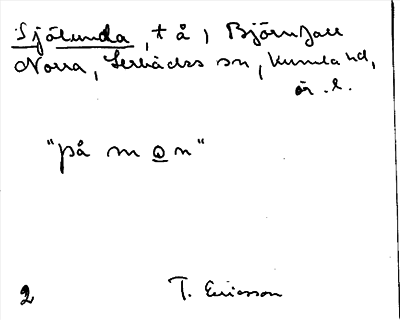 Sjölunda, t å, Björnfall
Norra, Lerbäcks sn, Kumla hd,
ör. l.
"på mon"
2 T. Ericsson